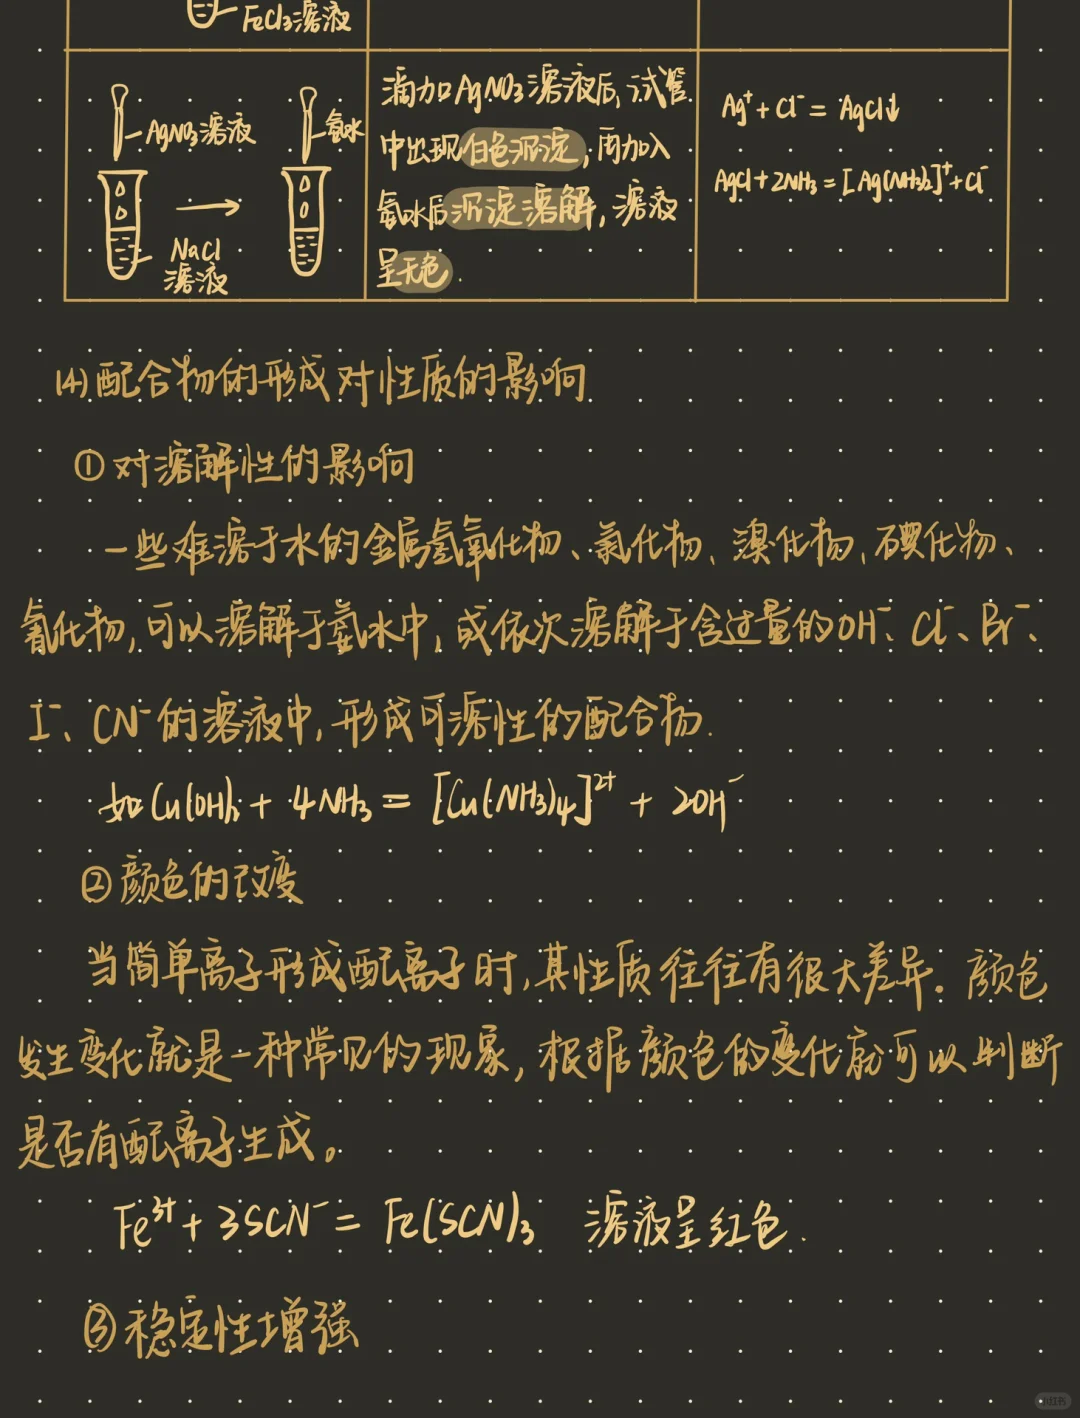 FeCl₃溶液
AgNO₃溶液
氨水
NaCl
溶液
滴加AgNO₃溶液后,试管
中出现白色沉淀,再加入
氨水后沉淀溶解,溶液
呈无色.
Ag⁺+Cl⁻=AgCl↓
AgCl+2NH₃=[Ag(NH₃)₂]⁺+Cl⁻
(4)配合物的形成对性质的影响
①对溶解性的影响
一些难溶于水的金属氢氧化物、氯化物、溴化物、碘化物、
氰化物,可以溶解于氨水中,或依次溶解于含过量的OH⁻、Cl⁻、Br⁻、
I⁻、CN⁻的溶液中,形成可溶性的配合物.
如Cu(OH)₂+4NH₃=[Cu(NH₃)₄]²⁺+2OH⁻
②颜色的改变
当简单离子形成配离子时,其性质往往有很大差异.颜色
发生变化就是一种常见的现象,根据颜色的变化就可以判断
是否有配离子生成。
Fe³⁺+3SCN⁻=Fe(SCN)₃ 溶液呈红色.
③稳定性增强
小红书